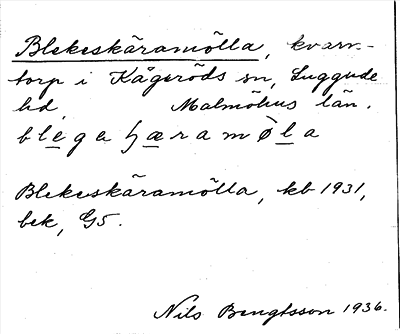 Blekeskäramölla, kvarn-
torp i Kågeröds sn, Luggude
hd, Malmöhus län.
blegeʃæramøla
Blekeskäramölla, kb 1931,
bek, G5.
Nils Bengtsson 1936.